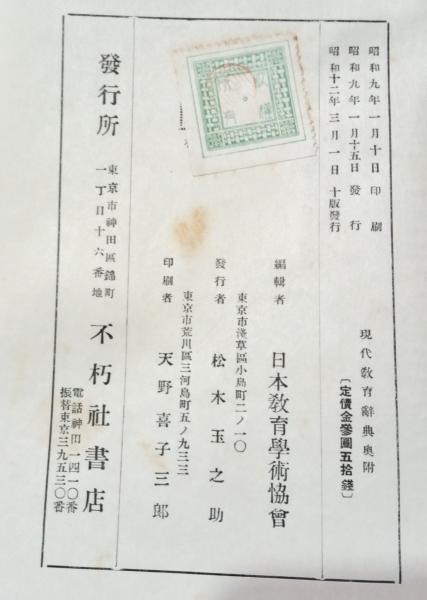 昭和九年一月十日印刷
昭和九年一月十五日發行
昭和十二年三月一日十版發行
現代教育辭典奥附
〔定價金參圓五拾錢〕
編輯者 日本教育學術協會
東京市淺草區小島町二ノ一〇
發行者 松木玉之助
東京市荒川區三河島町五ノ九三三
印刷者 天野喜子三郎
發行所 東京市神田區錦町
一丁目十六番地
不朽社書店
電話神田一四一〇番
振替東京三九五三〇番